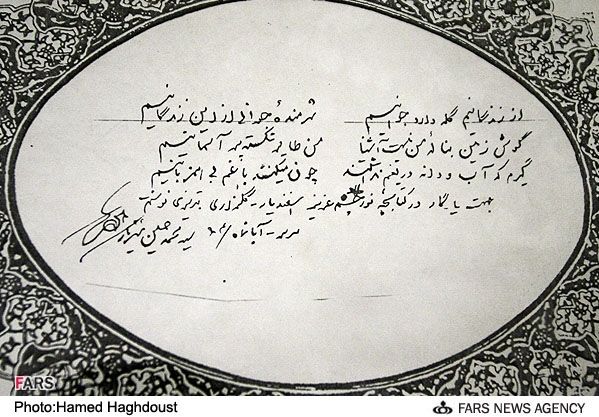 از زندگانیم گله دارد جوانیم شرمندهٔ جوانی از این زندگانیم
گوش زمین بنالهٔ من نیست آشنا من طایر شکسته پر آسمانیم
گیرم که آب و دانه دریغم نداشتند چون میکنند با غم بی همزبانیم
جهت یادگار در کتابچه نورچشم عزیز اسفندیار گلکاری تبریزی نوشتم
تبریز - آبانماه سید محمد حسین شهریار
FARS
Photo:Hamed Haghdoust
FARS NEWS AGENCY